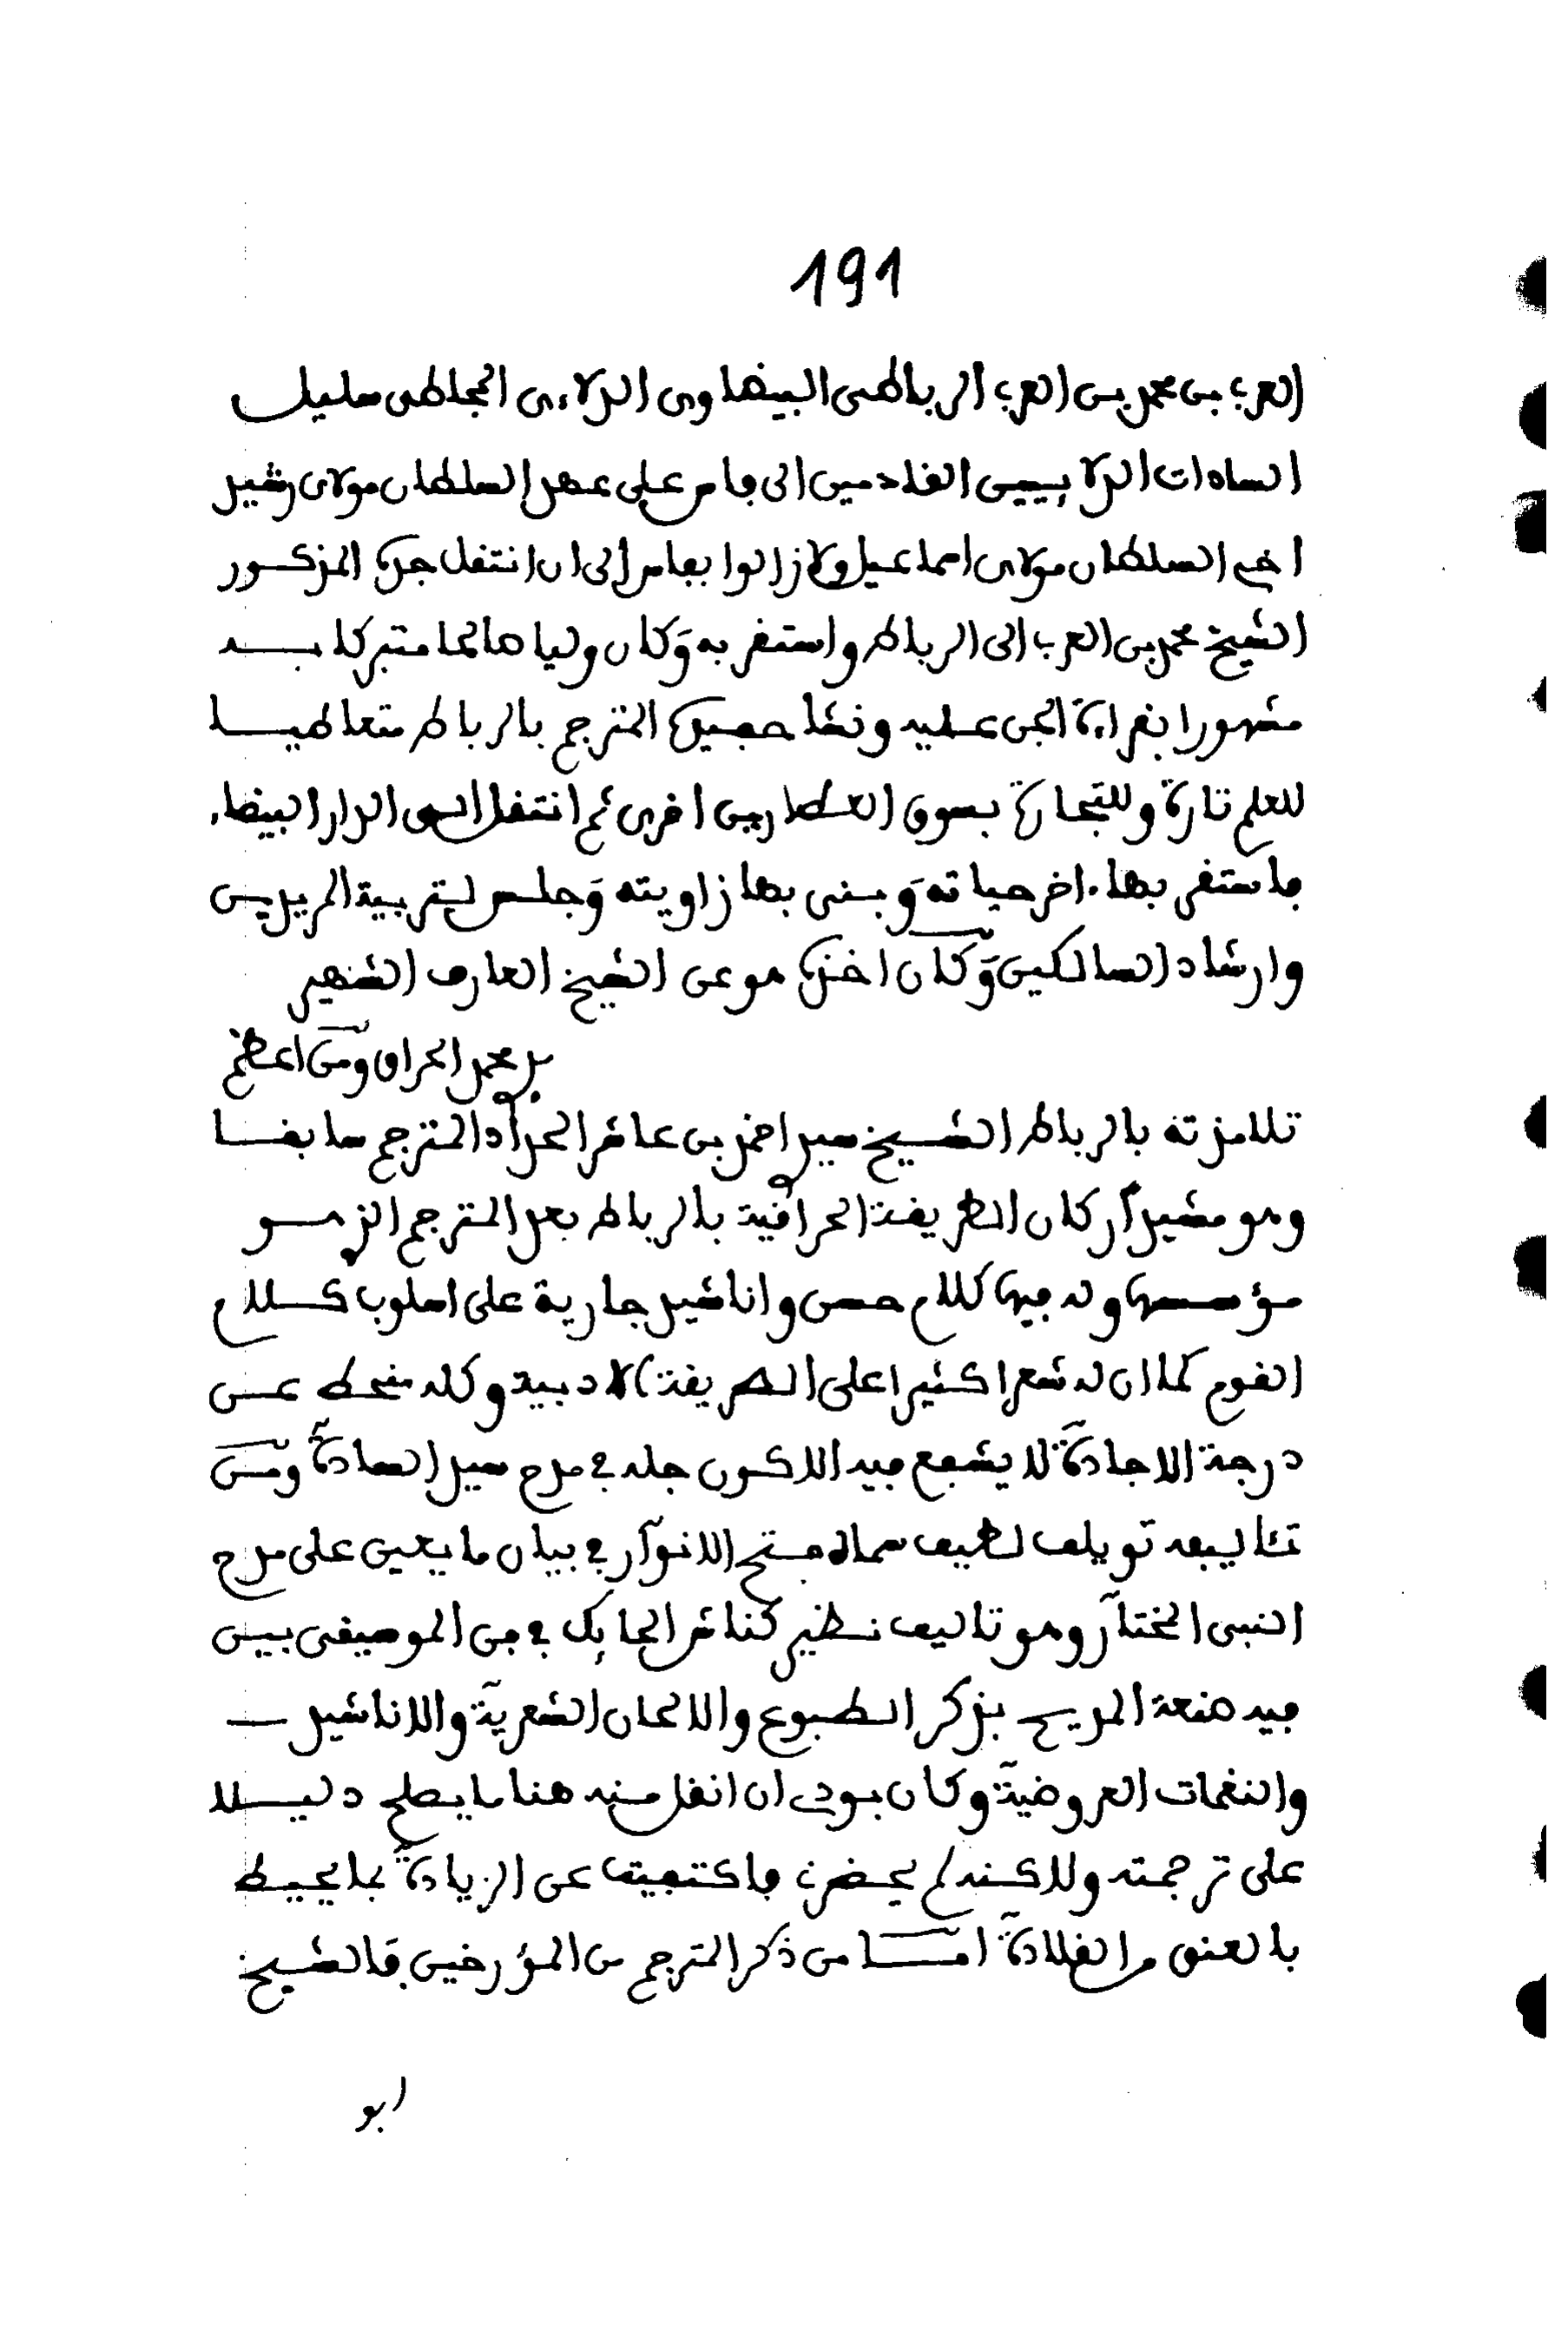 191
العرب بن محمد بن العرب الرباطي البيضاوي الدلاءي المجاطي سليل
السادات الدلاييين القادمين الى فاس على عهد السلطان مولاي رشيد
اخي السلطان مولاي اسماعيل ولازالوا بفاس إلى ان انتقل جده المذكور
الشيخ محمد بن العرب الى الرباط واستقر به وكان وليا صالحا متبركا بـــه
مشهورا بقراءة الجن عليه ونشا حفيده المترجم بالرباط متعاطيـــا
للعلم تارة وللتجارة بسوق العطارين اخرى ثم انتقل الـى الدار البيضاء
فاستقر بها ءاخر حياته وبنى بها زاويته وجلس لتربية المريديـن
وارشاد السالكين وكان اخذه هو عن الشيخ العارف الشهير
سيد محمد الحراق ومن اعظم
تلامذته بالرباط الشيخ سيد احمد بن عاشر الحداد المترجم سابقـــا
وهو مشيد أركان الطريقة الحراقية بالرباط بعد المترجم الذي هـــو
مؤسسها وله فيها كلام حسن واناشيد جارية على اسلوب كـــلام
القوم كما ان له شعرا كثيرا على الطريقة الادبية وكله منحط عـــن
درجة الاجادة لا يشفع فيه الا كون جله في مدح سيد السادة ومـن
تئاليفه تويلف لطيف سماه فتح الانوار في بيان ما يعين على مدح
النبي المختار وهو تاليف نظير كناش الحايك في فن الموسيقى بيـن
فيه صنعة المديح بذكر الطبوع والالحان الشعرية والاناشيد
والنغمات العروضية وكان بودي ان انقل منه هنا ما يصلح دليـــلا
على ترجمته ولاكنه لم يحضرني فاكتفيت عن الزيادة بما يحيط
بالعنق من القلادة امـــا من ذكر المترجم من المؤرخين فالشيخ
ابو